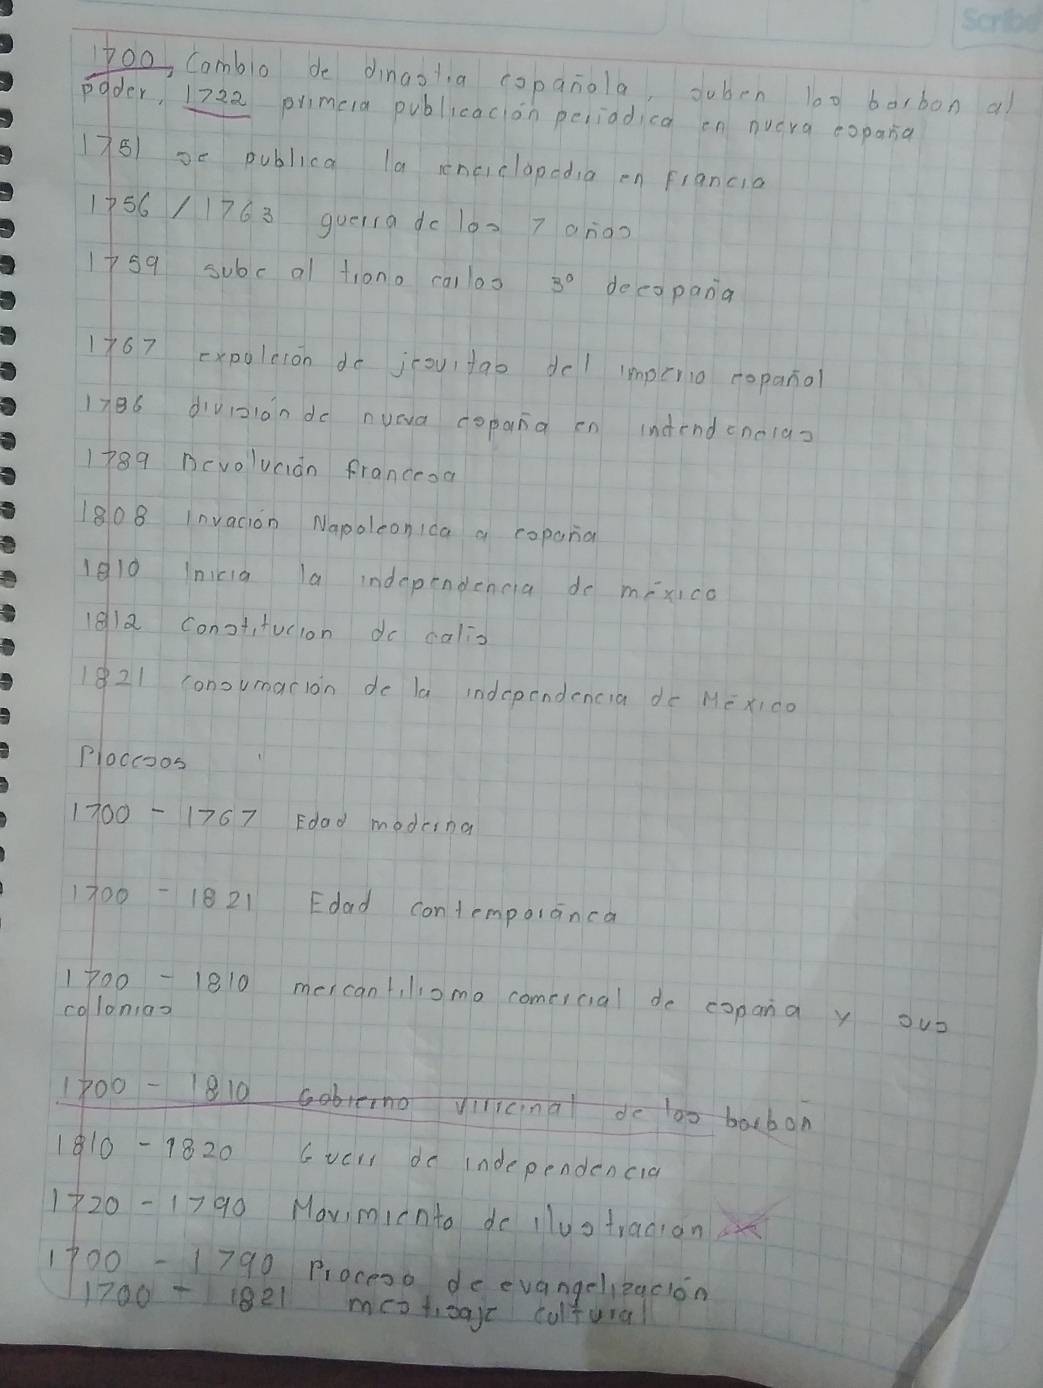 Scribe
1700, Cambio de dinastia española, suben los borbon al
poder, 1722 primera publicación periodica en nueva españa
1751 se publica la enciclopedia en Francia
1756 / 1763 guerra de los 7 años
1759 sube al trono carlos 3° de españa
1767 expulcion de jesuitas del imperio español
1786 división de nueva españa en intendencias
1789 Revolución francesa
1808 invación Napoleonica a españa
1810 Inicia la independencia de méxico
1812 constitucion de calis
1821 consumación de la independencia de México
Procesos
1700 - 1767 Edad moderna
1700 - 1821 Edad contemporánea
1700 - 1810 mercantilismo comercial de españa y sus
colonias
1700 - 1810 Gobierno viricinal de los borbon
1810 - 1820 Guerr de independencia
1720 - 1790 Movimiento de ilustracion
1700 - 1790 Proceso de evangelización
1700 - 1821 mestisaje cultural